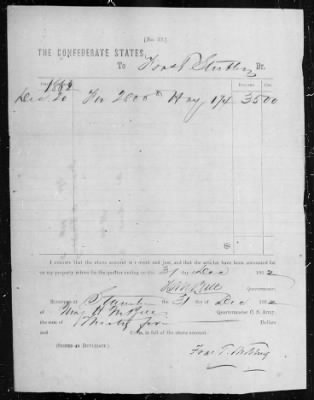 [No. 22.]
THE CONFEDERATE STATES,
To Dr.
Dollars. Cts.
1862
Dec. 20 For 2000 lbs Hay 1¾ 35 00
I certify that the above account is correct and just, and that the articles have been accounted for
on my property return for the quarter ending on the 31 day Dec 1862
Bell
Quartermaster.
Received at the 31 day of Dec 1862
of Quartermaster C. S. Army,
the sum of Thirty five Dollars
and Cents, in full of the above account.
(Signed in Duplicate.)